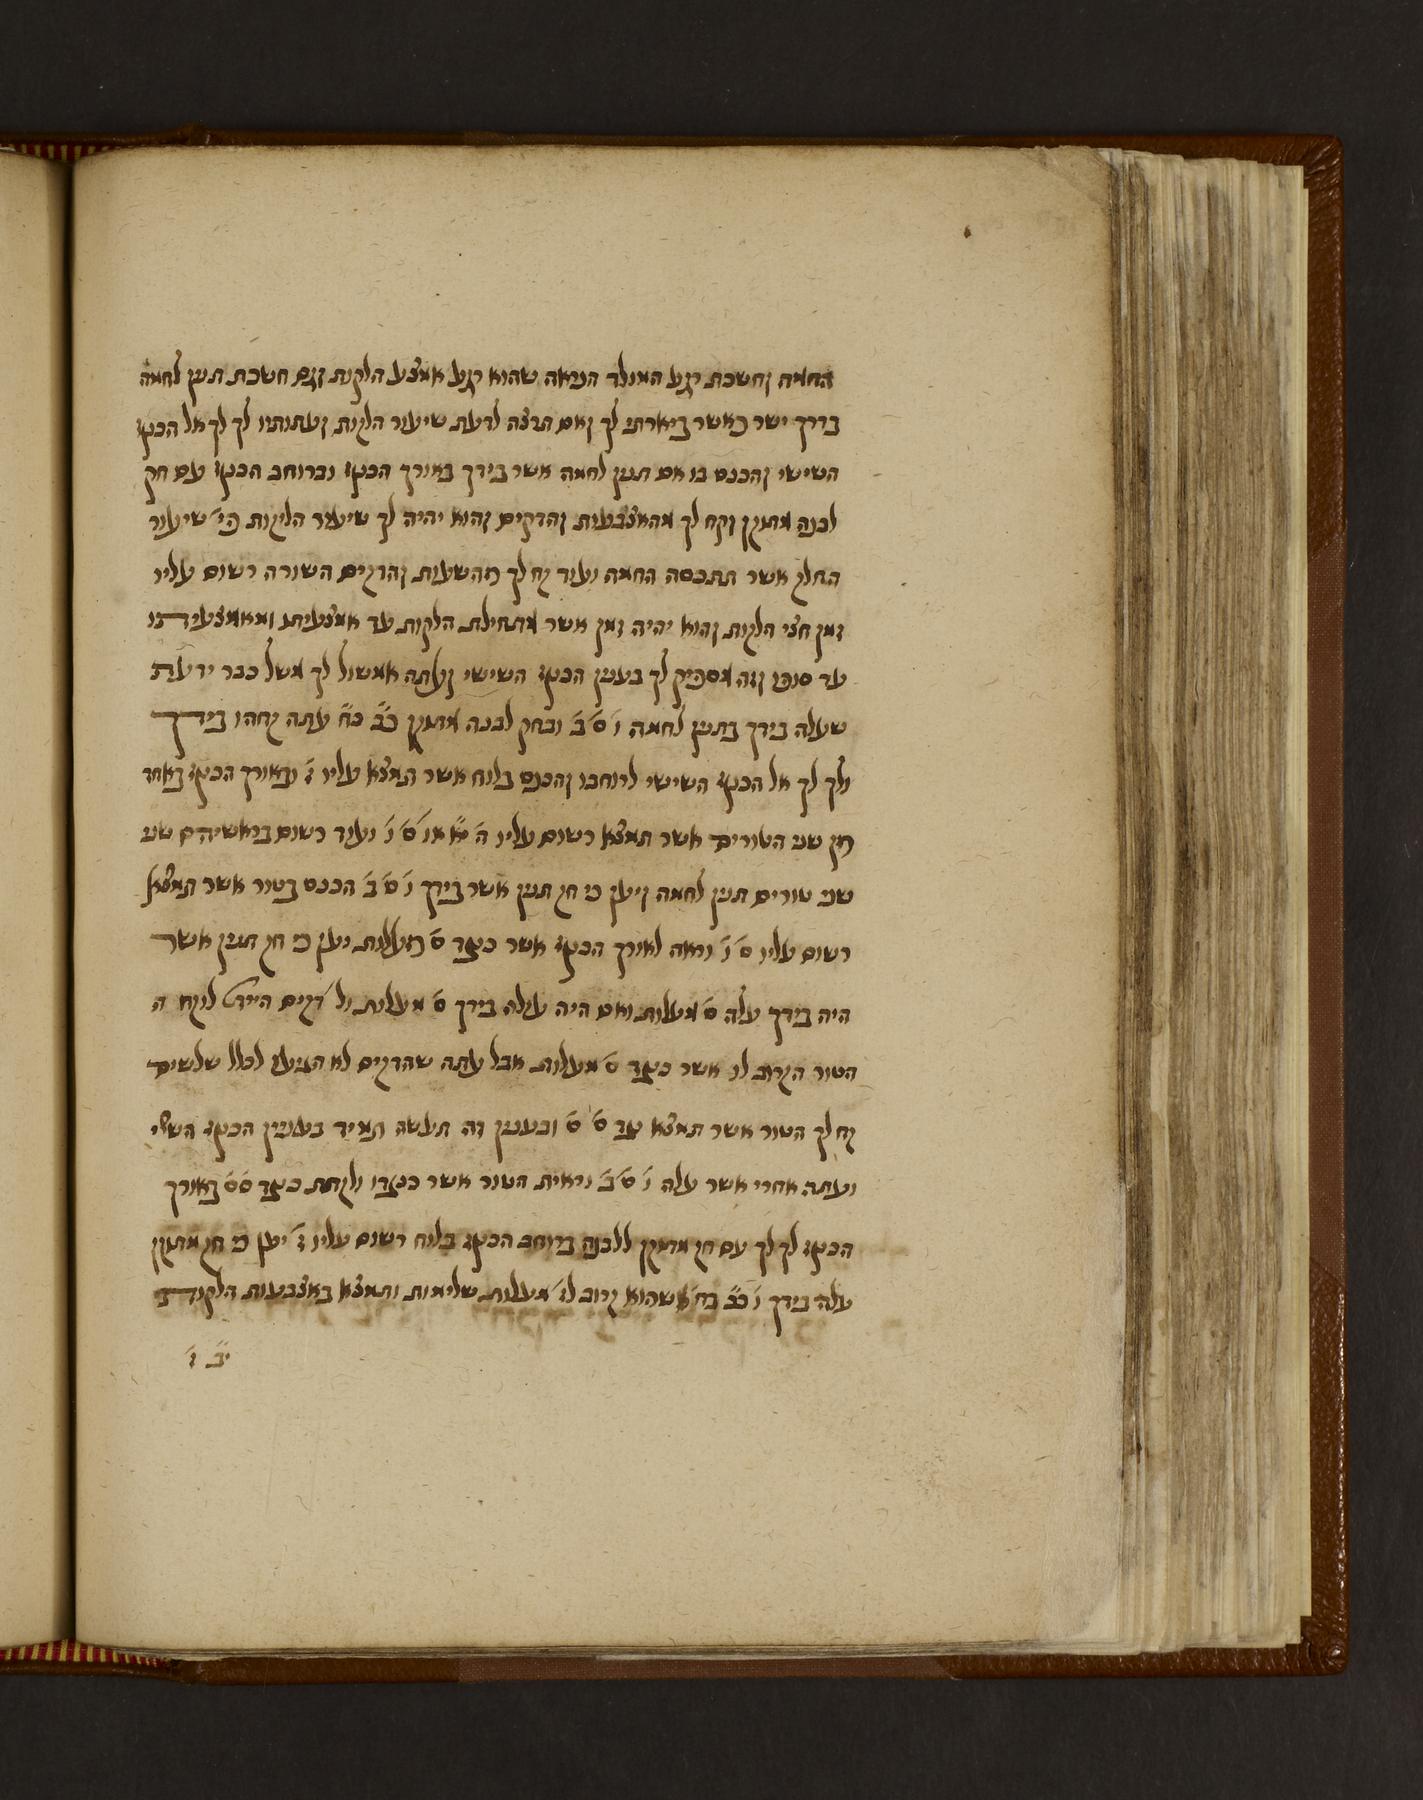 החמה וחשכת רגע המולד הנראה שהוא רגע אמצע הלקות וגם חשכת תנין לחמה
בדרך ישר כאשר ביארתי לך ואם תרצה לדעת שיעור הלקות ועתותיו לך לך אל הכנף
השישי והכנס בו אם תנין לחמה אשר בידך באורך הכנף וברוחב הכנף עם חק
לבנה מתוקן וקח לך מהאצבעות והדקים והוא יהיה לך שיעור הליקות כי שיעור
החלק אשר תתכסה החמה ועוד קח לך מהשעות והדקים השורה רשום עליו
זמן חצי הלקות והוא יהיה זמן אשר מתחילת הלקות עד אמצעיתו ומאמצעיתו
עד סופו וזה מספיק לך בענין הכנף השישי ועתה אמשול לך משל כבר ידעת
שעלה בידך בתנין לחמה ו' ט' ב' ובחק לבנה מתוקן כ"ב כ"ח עתה קחהו בידך
ולך לך אל הכנף השישי לרוחבו והכנס בלוח אשר תמצא עליו ו' ובאורך הכנף באחד
מן שני הטורים אשר תמצא רשום עליו ה' י"א או ט' ו' ועוד רשום בראשיהם שני
שני טורים תנין לחמה ויען כי חק תנין אשר בידך ו' ט' ב' הכנס בטור אשר תמצא
רשום עליו ט' ו' וראה לאורך הכנף אשר כנגד ט' מעלות יען כי חק תנין אשר
היה בידך עלה ט' מעלות ואם היה עולה בידך ט' מעלות ול' דקים היית לוקח ה
הטור הקרוב לו אשר כנגד י' מעלות אבל עתה שהדקים לא הגיעו לכלל שלשים
קח לך הטור אשר תמצא נגד ט' ט' ובענין זה תעשה תמיד בענין הכנף השישי
ועתה אחרי אשר עלה ו' ט' ב' וראית הטור אשר כנגדו ולקחת כנגד ט' ט' באורך
הכנף לך לך עם חק מתוקן ללבנה ברוחב הכנף בלוח רשום עליו ו' יען כי חק מתוקן
עלה בידך ו' כ"ב כ"ח שהוא קרוב לו' מעלות שלימות ותמצא באצבעות הלקות
י"ב ו'